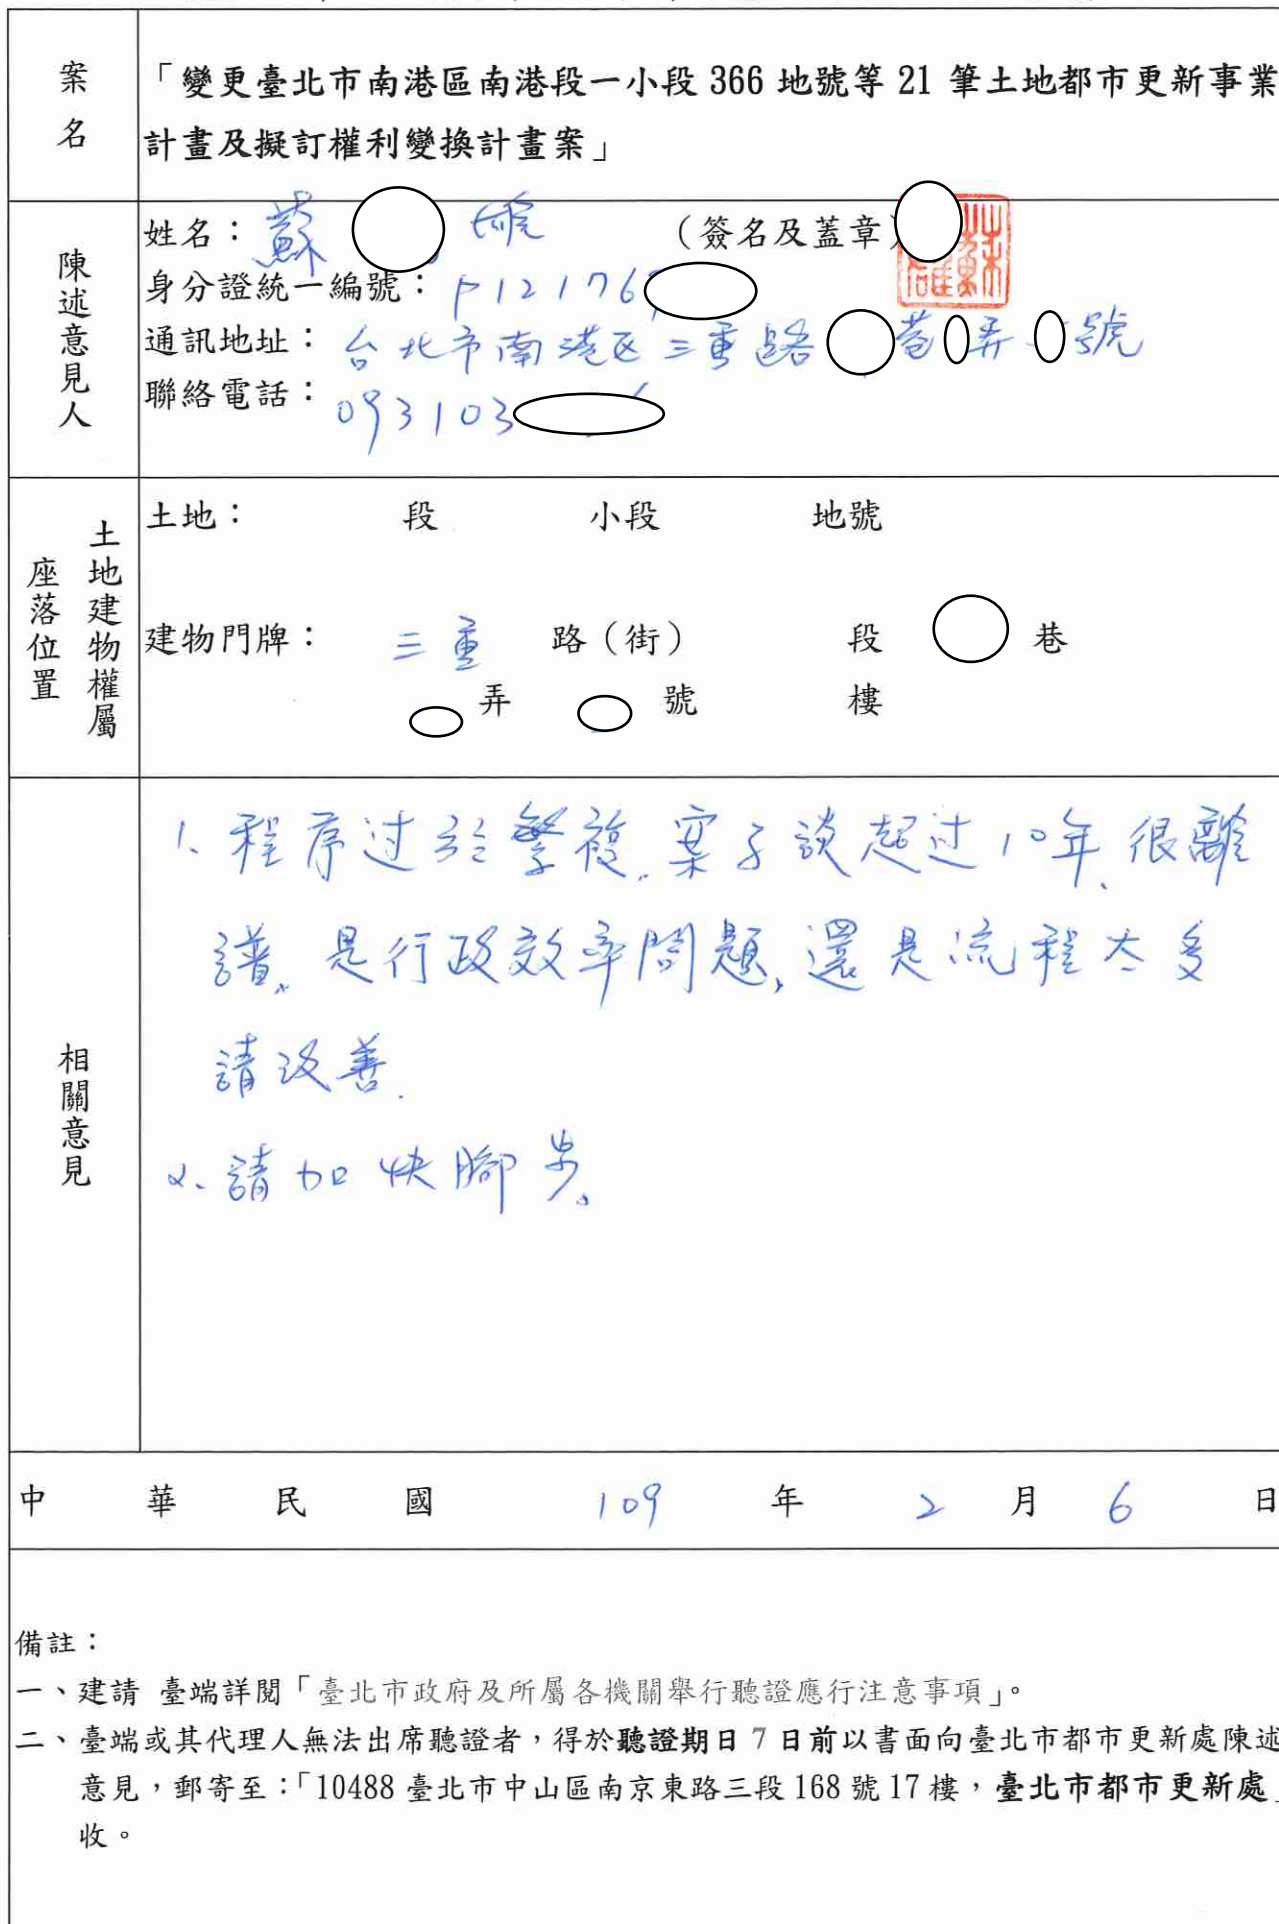 案名
「變更臺北市南港區南港段一小段 366 地號等 21 筆土地都市更新事業
計畫及擬訂權利變換計畫案」
陳述意見人
姓名：蘇 （簽名及蓋章）
身分證統一編號：P12176
通訊地址：台北市南港区三重路 巷 弄 號
聯絡電話：093103
土地建物權屬
座落位置
土地： 段 小段 地號
建物門牌： 三重 路（街） 段 巷
弄 號 樓
相關意見
1. 程序过於繁複。案子談超过10年、很離
譜。是行政效率問題、還是流程太多
請改善.
2. 請加快腳步。
中華民國 109 年 2 月 6 日
備註：
一、建請 臺端詳閱「臺北市政府及所屬各機關舉行聽證應行注意事項」。
二、臺端或其代理人無法出席聽證者，得於聽證期日 7 日前以書面向臺北市都市更新處陳述
意見，郵寄至：「10488 臺北市中山區南京東路三段 168 號 17 樓，臺北市都市更新處」
收。